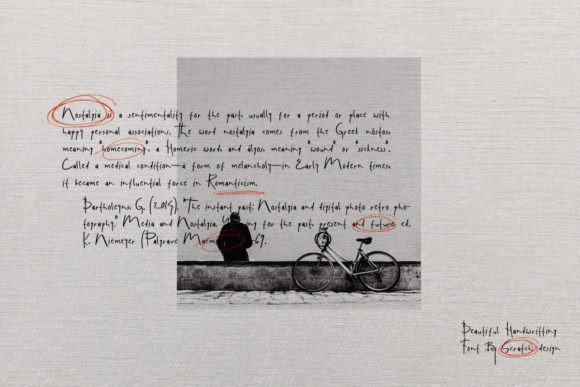 Nostalgia is a sentimentality for the past, usually for a period or place with
happy personal associations. The word nostalgia comes from the Greek nóstos,
meaning "homecoming", a Homeric word, and algos, meaning "wound" or "sickness".
Called a medical condition—a form of melancholy—in Early Modern times,
it became an influential force in Romanticism.
Bartholeyns, G. (2014). "The instant past: Nostalgia and digital photo retro pho-
tography." Media and Nostalgia. for the past, present and future, ed.
K. Niemeyer (Palgrave 69.
Beautiful Handwritting
Font By Scratch design